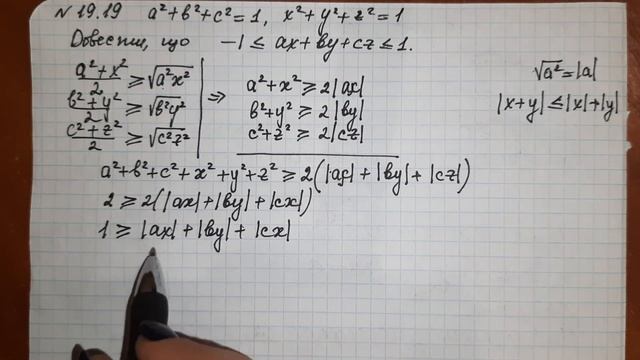 № 19.19 a²+b²+c²=1, x²+y²+z²=1
Довести, що −1 ≤ ax+by+cz ≤ 1.
(a²+x²)/2 ≥ √(a²x²)
(b²+y²)/2 ≥ √(b²y²)
(c²+z²)/2 ≥ √(c²z²)
⇒
a²+x² ≥ 2|ax|
b²+y² ≥ 2|by|
c²+z² ≥ 2|cz|
√a² = |a|
|x+y| ≤ |x|+|y|
a²+b²+c²+x²+y²+z² ≥ 2(|ax|+|by|+|cz|)
2 ≥ 2(|ax|+|by|+|cx|)
1 ≥ |ax|+|by|+|cx|